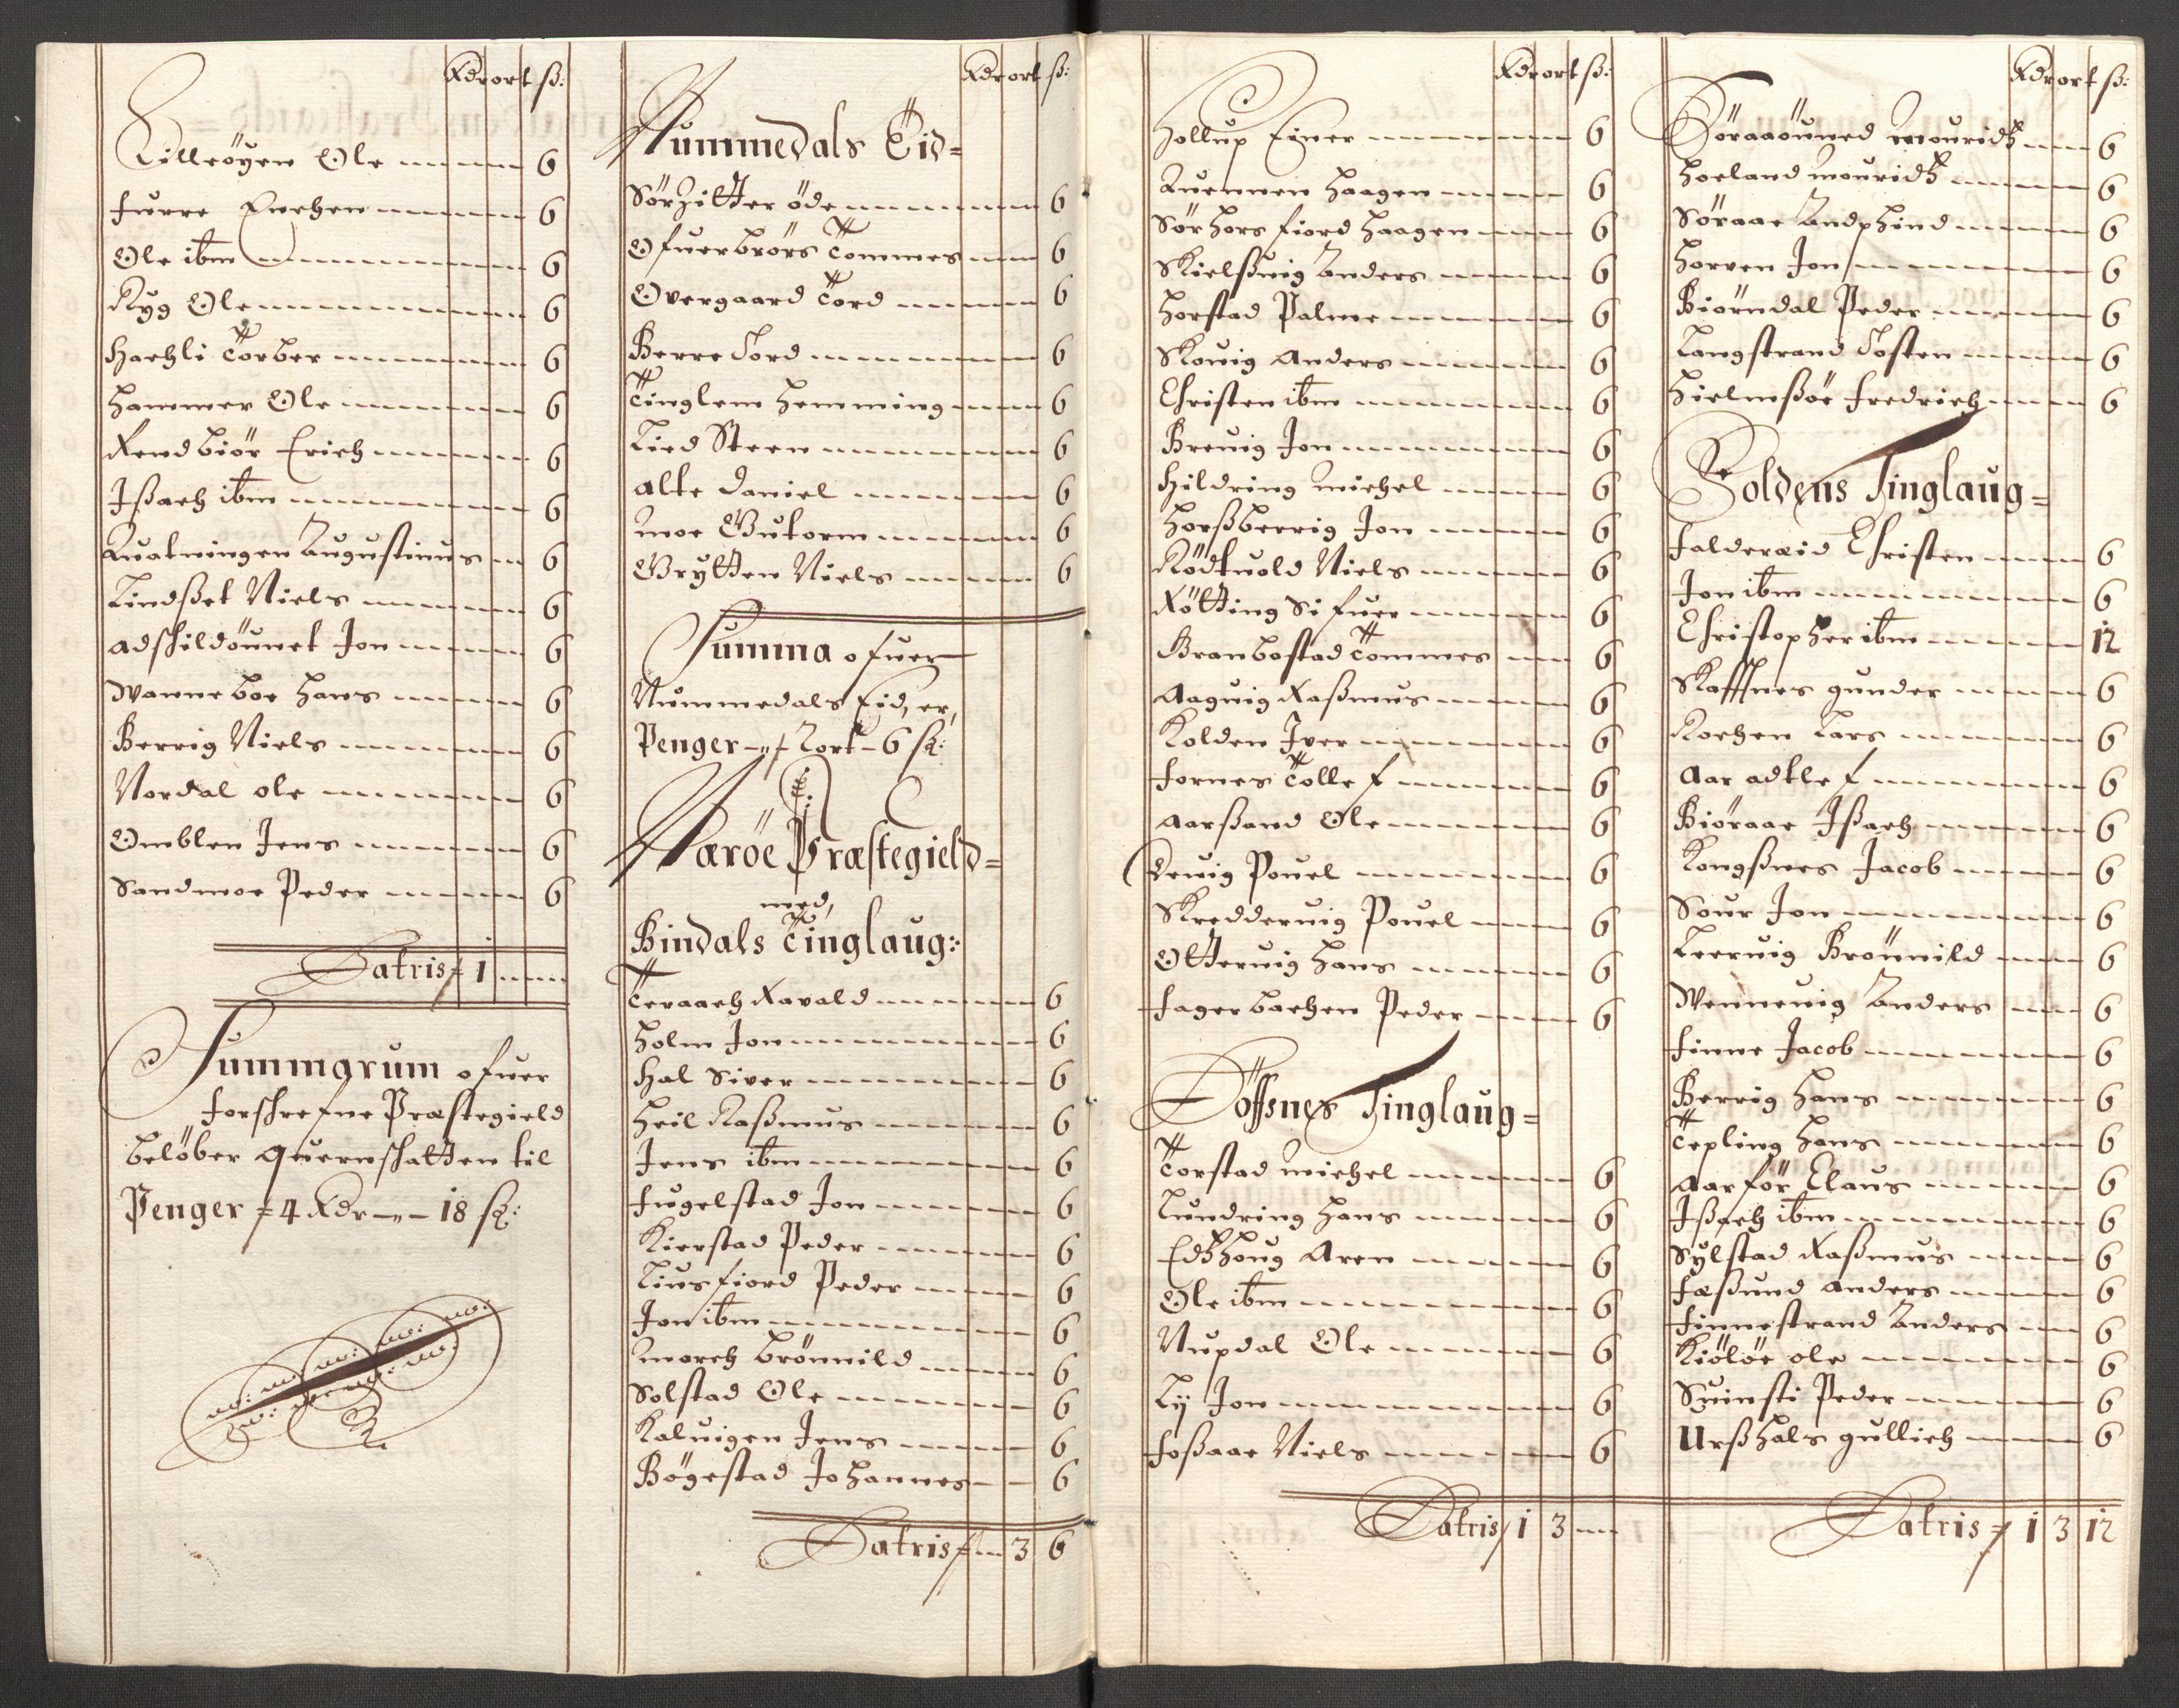 Rdr ort ß:
Lilleöyen Ole 6
furre Enchen 6
Ole ibm 6
Ryg Ole 6
Hachli Torber 6
Hammer Ole 6
Rendbiör Erich 6
Ißach ibm 6
Quatningen Augustinus 6
Lindßet Niels 6
adschildöunet Jon 6
Wanneboe Hans 6
Berrig Niels 6
Nordal ole 6
Omblen Jens 6
Sandmoe Peder 6
Latris 1
Summarum ofuer
forschrefne Præstegield
belöber Quernschatten til
Penger = 4 Rdr - „ - 18 ſß:
Rdr ort ß:
Nummedals Eid=
Sörzitter öde 6
Ofuerbrörs Tommes 6
Overgaard Tord 6
Berre Tord 6
Tinglem Hemming 6
Lied Steen 6
alte Daniel 6
moe Gutorm 6
Grytten Niels 6
Summa ofuer
Nummedals Eid, er,
Penger - „ - 2 ort - 6 ſß:
Næröe Præstegield=
med,
Bindals Tinglaug:
Teraach Ravald 6
Holm Jon 6
Hal Siver 6
Heil Raßmus 6
Jens ibm 6
fugelstad Jon 6
Kierstad Peder 6
Liusfiord Peder 6
Jon ibm 6
morch brönnild 6
Solstad Ole 6
Kalvigen Jens 6
Bögestad Johannes 6
Latris 3 6
Rdr ort ß:
Hollup Einer 6
Quennen Haagen 6
Sörhorsfiord Haagen 6
Skielßvig Anders 6
Horstad Palme 6
Skouig Anders 6
Christen ibm 6
Brevig Jon 6
Hildring michel 6
Horßberrig Jon 6
Rödtuold Niels 6
Rötting Sifuer 6
Branbostad Tommes 6
Aaguig Raßmus 6
Kolden Iver 6
fornes Tollef 6
Aarßand Ole 6
Devig Pouel 6
Skreddervig Pouel 6
Ottervig Hans 6
fagerbachen Peder 6
Föſsnes Tinglaug=
Torstad michel 6
Lundring Hans 6
Edßhoug Aren 6
Ole ibm 6
Nupdal Ole 6
Ly Jon 6
foßaae Niels 6
Latris 1 3
Rdr ort ß:
Söraaöuned mouridß 6
Hoeland mouridß 6
Söraae 6
Horven Jon 6
Biörndal Peder 6
Langstrand Tosten 6
Hielmßöe fredrich 6
Foldens Tinglaug=
falderæid Christen 6
Jon ibm 6
Christopher ibm 12
Skaffnes gunder 6
Kochen Lars 6
Aar adtlef 6
Biöraae Ißach 6
Kongßnes Jacob 6
Sour Jon 6
Leervig Brönnild 6
Wennevig Anders 6
finne Jacob 6
Berrig Hans 6
Tepling Hans 6
Aarför Claus 6
Ißach ibm 6
Sylstad Raßmus 6
fæßund anders 6
finnestrand Anders 6
Kiölöe ole 6
Suinsti Peder 6
Urßhals gullich 6
Latris 1 3 12